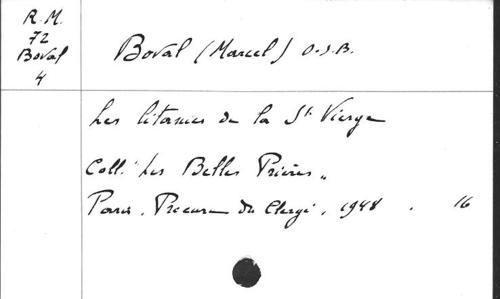 R.M.
72
Boval
4
Boval (Marcel) O.S.B.
Les litanies de la Ste Vierge
Coll. "Les Belles Prières"
Paris. Procure du Clergé. 1948. 16